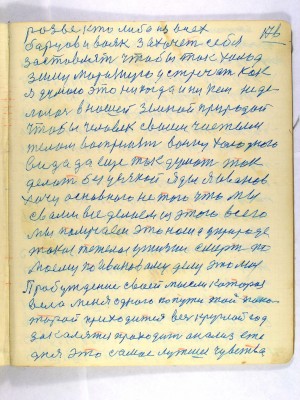 разве кто либо из всех 176
борцов и вояк захочет себя
заставлять чтобы так холод
зиму морозную встречать как
я думаю это никогда и ни кем не де
лалось в нашей земной природой
чтобы человек своим чистым
телом воспринять волну холодного
вида да еще так думать так
делать без всякой я Иванов
хочу основного не того что мы
с вами сделаем из этого всего
мы получаем это наше природе
такая тяжелая жизни смерть по
моему по Ивановому делу это мое
Пробуждение своей мысли которая
вела меня одного по пути той по ко
торой приходится весь круглый год
закаляться проходить анализ это
для это самое лучшее чувства